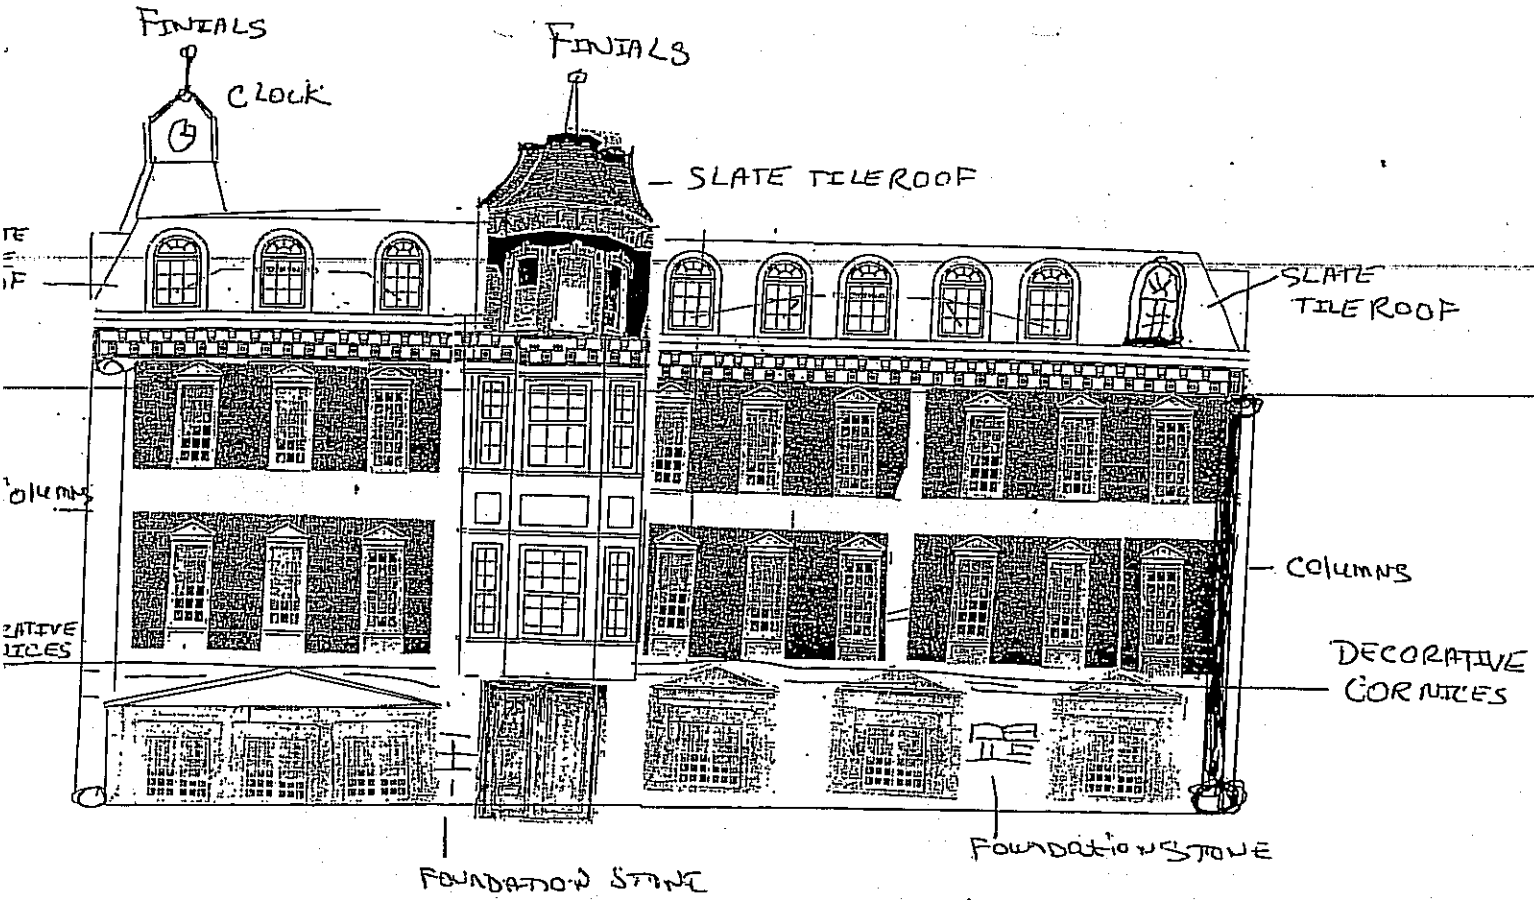 FINIALS
FINIALS
CLOCK
SLATE TILE ROOF
TE
E
IF
SLATE
TILE ROOF
olumns
COlUMNS
RATIVE
NICES
DECORATIVE
CORNICES
FOUNDATION STONE
FOUNDATION STONE